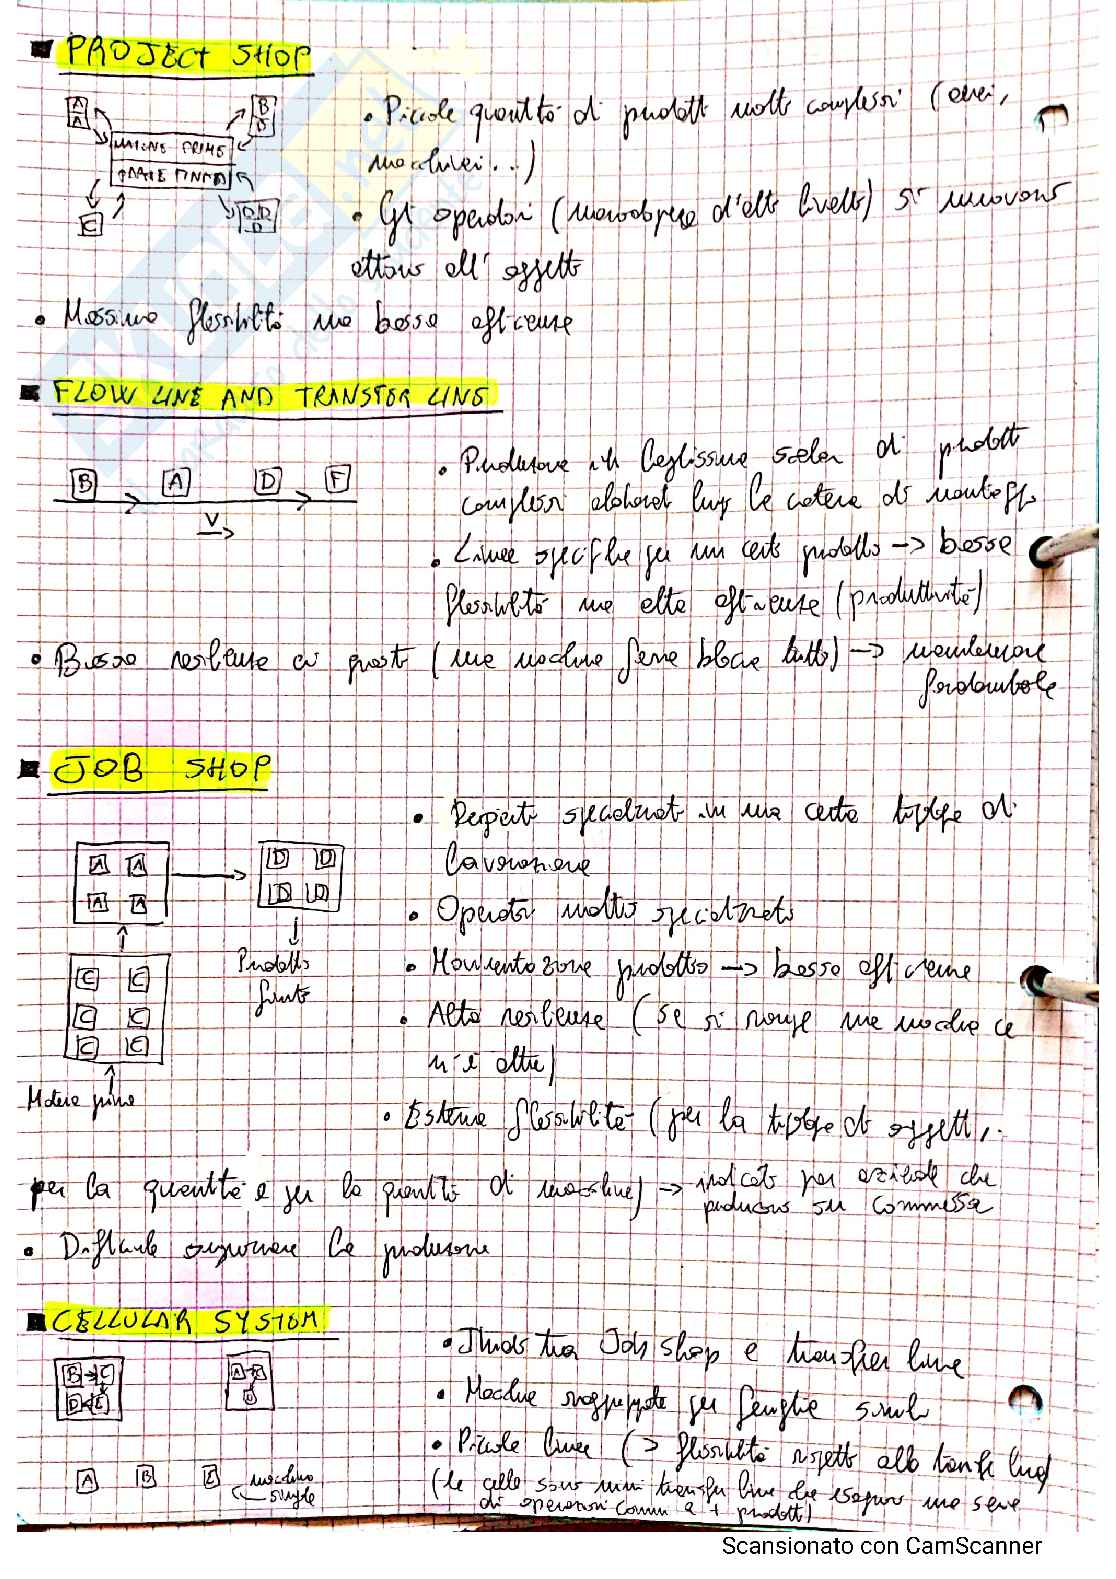 PROJECT SHOP
A
A
B
D
MATERIE PRIME
C
D D
D
• Piccole quantità di prodotti molto complessi (aerei,
macchinari...)
• Gli operatori (manodopera d'alto livello) si muovono
attorno all'oggetto
• Massima flessibilità ma bassa efficienza
FLOW LINE AND TRANSFER LINE
B A D F
V
• Produzione in larghissima scala di prodotti
complessi elaborati lungo la catena di montaggio
• Linee specifiche per un certo prodotto -> bassa
flessibilità ma alta efficienza (produttività)
• Bassa resilienza ai guasti (una macchina ferma blocca tutto) -> manutenzione
fondamentale
JOB SHOP
A A
A A
D D
D D
C C
C C
C C
Prodotto
finito
Materie prime
• Reparti specializzati in una certa tipologia di
lavorazione
• Operatori molto specializzati
• Movimentazione prodotto -> bassa efficienza
• Alta resilienza (se si rompe una macchina ce
n'è altre)
• Estrema flessibilità (per la tipologia di oggetti,
per la quantità e per la quantità di macchine) -> indicato per aziende che
producono su commessa
• Difficile organizzare la produzione
CELLULAR SYSTEM
B C
D E
A
D
A B E macchine
singole
• Ibrido tra Job shop e transfer line
• Macchine raggruppate per famiglie simili
• Piccole linee (> flessibilità rispetto alla transfer line)
(le celle sono mini transfer line che eseguono una serie
di operazioni comuni a + prodotti)
Scansionato con CamScanner